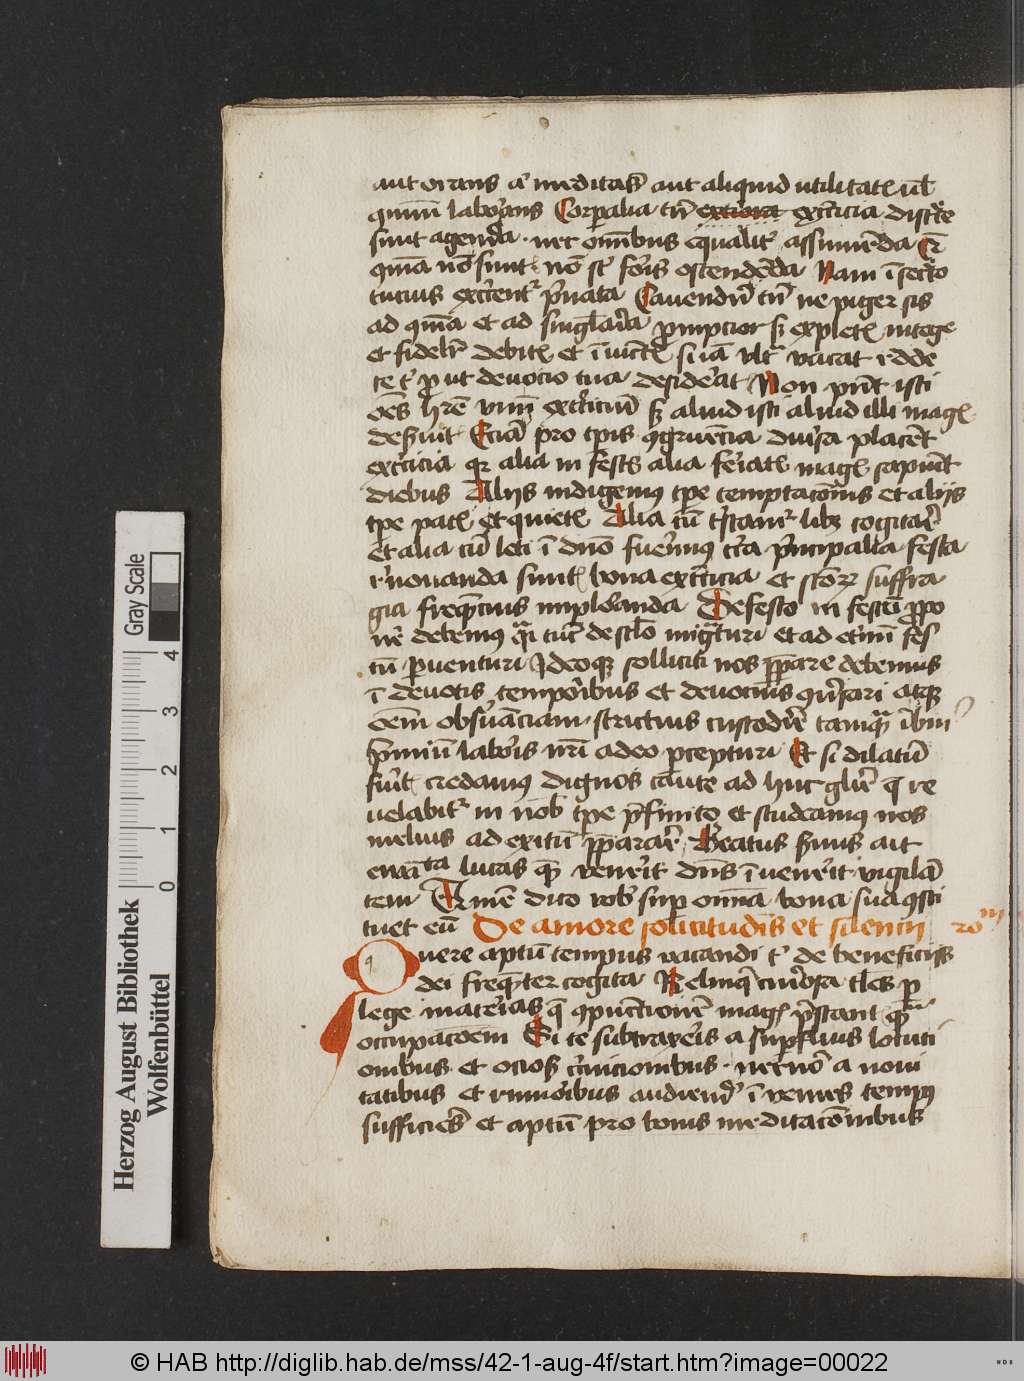 aut orans aut meditans aut aliquid utilitatis vel
quium laborans Corporalia tamen exercicia discrete
sunt agenda nec omnibus equaliter assumenda Que
quia non sunt non sunt foris ostendenda Nam in secreto
tucius exercentur privata Cavendum tamen ne piger sis
ad communia et ad singularia prompcior sed expletis integre
et fideliter debitis et iniunctis si iam ultra vacat redde
te tibi prout devocio tua desiderat Non possunt isti
omnes habere unum exercicium sed aliud isti aliud illi magis
deservit Eciam pro temporis congruencia diversa placent
exercicia quia alia in festis alia feriatis magis sapiunt
diebus Aliis indigemus tempore temptacionis et aliis
tempore pacis et quietis Alia cum tristamur libet cogitare
et alia cum leti in domino fuerimus circa principalia festa
renovanda sunt bona exercicia et sanctorum suffra
gia frequencius imploranda De festo in festum propo
nere debemus quasi tunc de seculo migraturi et ad eternum fes
tum perventuri Ideoque solliciti nos preparare debemus
in devotis temporibus et devocius conversari atque
omnem observanciam strictius custodire tamquam in brevi
premium laboris nostri a deo percepturi Et si dilatum
fuerit credamus dignos tante ad huc glorie que re
velabitur in nobis tempore prefinito et studeamus nos
melius ad exitum preparare Beatus servus ait
ewangelista lucas quem cum venerit dominus invenerit vigilan
tem Amen dico vobis super omnia bona sua consti
tuet eum De amore solicitudinis et silencii xxm
Quere aptum tempus vacandi tibi et de beneficiis
dei frequenter cogita Relinque curiosa tales per
lege materias que compunctionem magis prestant quam
occupacionem Si te subtraxeris a superfluis locuti
onibus et ociosis circuicionibus nec non a novi
tatibus et rumoribus audiendis invenies tempus
sufficiens et aptum pro bonis meditacionibus
Herzog August Bibliothek
Wolfenbüttel
0 1 2 3 4
Gray Scale
© HAB http://diglib.hab.de/mss/42-1-aug-4f/start.htm?image=00022